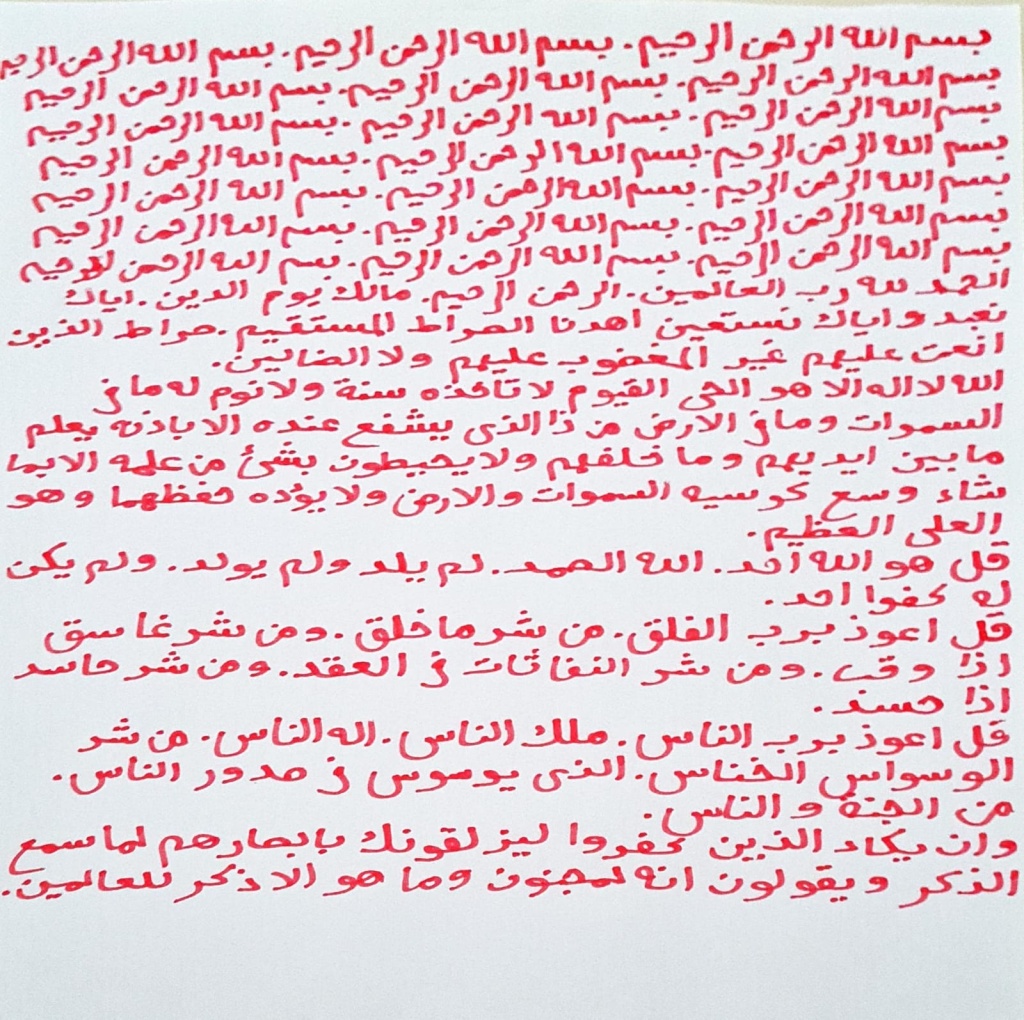 بسم الله الرحمن الرحيم. بسم الله الرحمن الرحيم. بسم الله الرحمن الرحيم
بسم الله الرحمن الرحيم. بسم الله الرحمن الرحيم. بسم الله الرحمن الرحيم
بسم الله الرحمن الرحيم. بسم الله الرحمن الرحيم. بسم الله الرحمن الرحيم
بسم الله الرحمن الرحيم. بسم الله الرحمن الرحيم. بسم الله الرحمن الرحيم
بسم الله الرحمن الرحيم. بسم الله الرحمن الرحيم. بسم الله الرحمن الرحيم
بسم الله الرحمن الرحيم. بسم الله الرحمن الرحيم. بسم الله الرحمن الرحيم
بسم الله الرحمن الرحيم. بسم الله الرحمن الرحيم. بسم الله الرحمن الرحيم
الحمد لله رب العالمين. الرحمن الرحيم. مالك يوم الدين. اياك
نعبد واياك نستعين اهدنا الصراط المستقيم. صراط الذين
انعت عليهم غير المغضوب عليهم ولا الضالين.
الله لا اله الا هو الحى القيوم لا تأخذه سنة ولا نوم له ما في
السموات وما في الارض من ذا الذى يشفع عنده الا باذنه يعلم
ما بين ايديهم وما خلفهم ولا يحيطون بشئ من علمه الا بما
شاء وسع كرسيه السموات والارض ولا يؤده حفظهما وهو
العلى العظيم.
قل هو الله أحد. الله الصمد. لم يلد ولم يولد. ولم يكن
له كفوا احد.
قل اعوذ برب الفلق. من شر ما خلق. ومن شر غاسق
اذا وقب. ومن شر النفاثات في العقد. ومن شر حاسد
اذا حسد.
قل اعوذ برب الناس. ملك الناس. اله الناس. من شر
الوسواس الخناس. الذى يوسوس في صدور الناس.
من الجنة و الناس.
وان يكاد الذين كفروا ليزلقونك بابصارهم لما سمع
الذكر ويقولون انه لمجنون وما هو الا ذكر للعالمين.